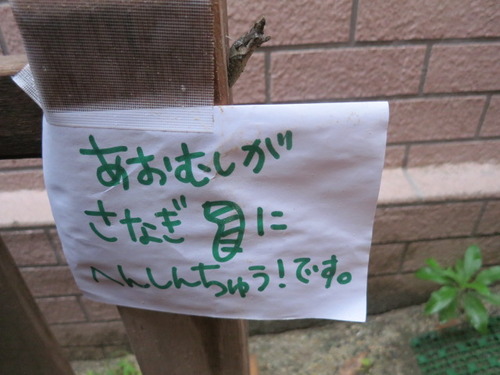 あおむしが
さなぎ に
へんしんちゅう!です。